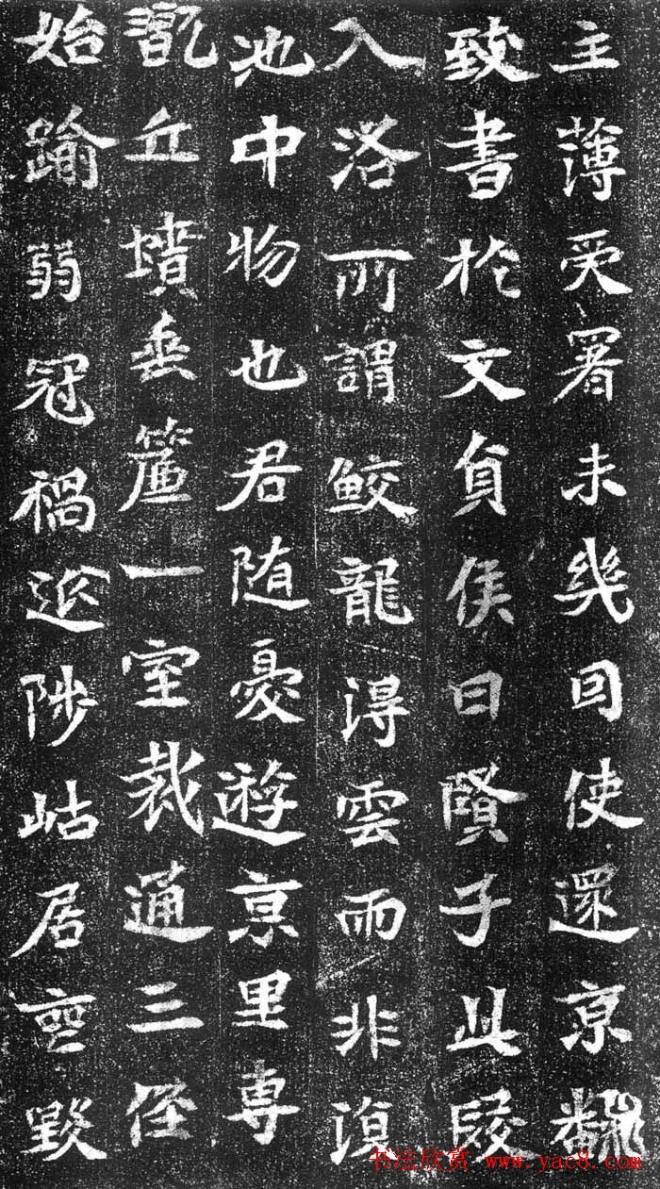 主薄受署未幾回使還京飜
致書於文貞侯曰賢子此段
入洛所謂鮫龍得雲而非復
池中物也君随憂遊京里專
翫丘墳垂簾一室裁通三俓
始踰弱冠禍延陟岵居喪毀
书法欣赏 www.yac8.com